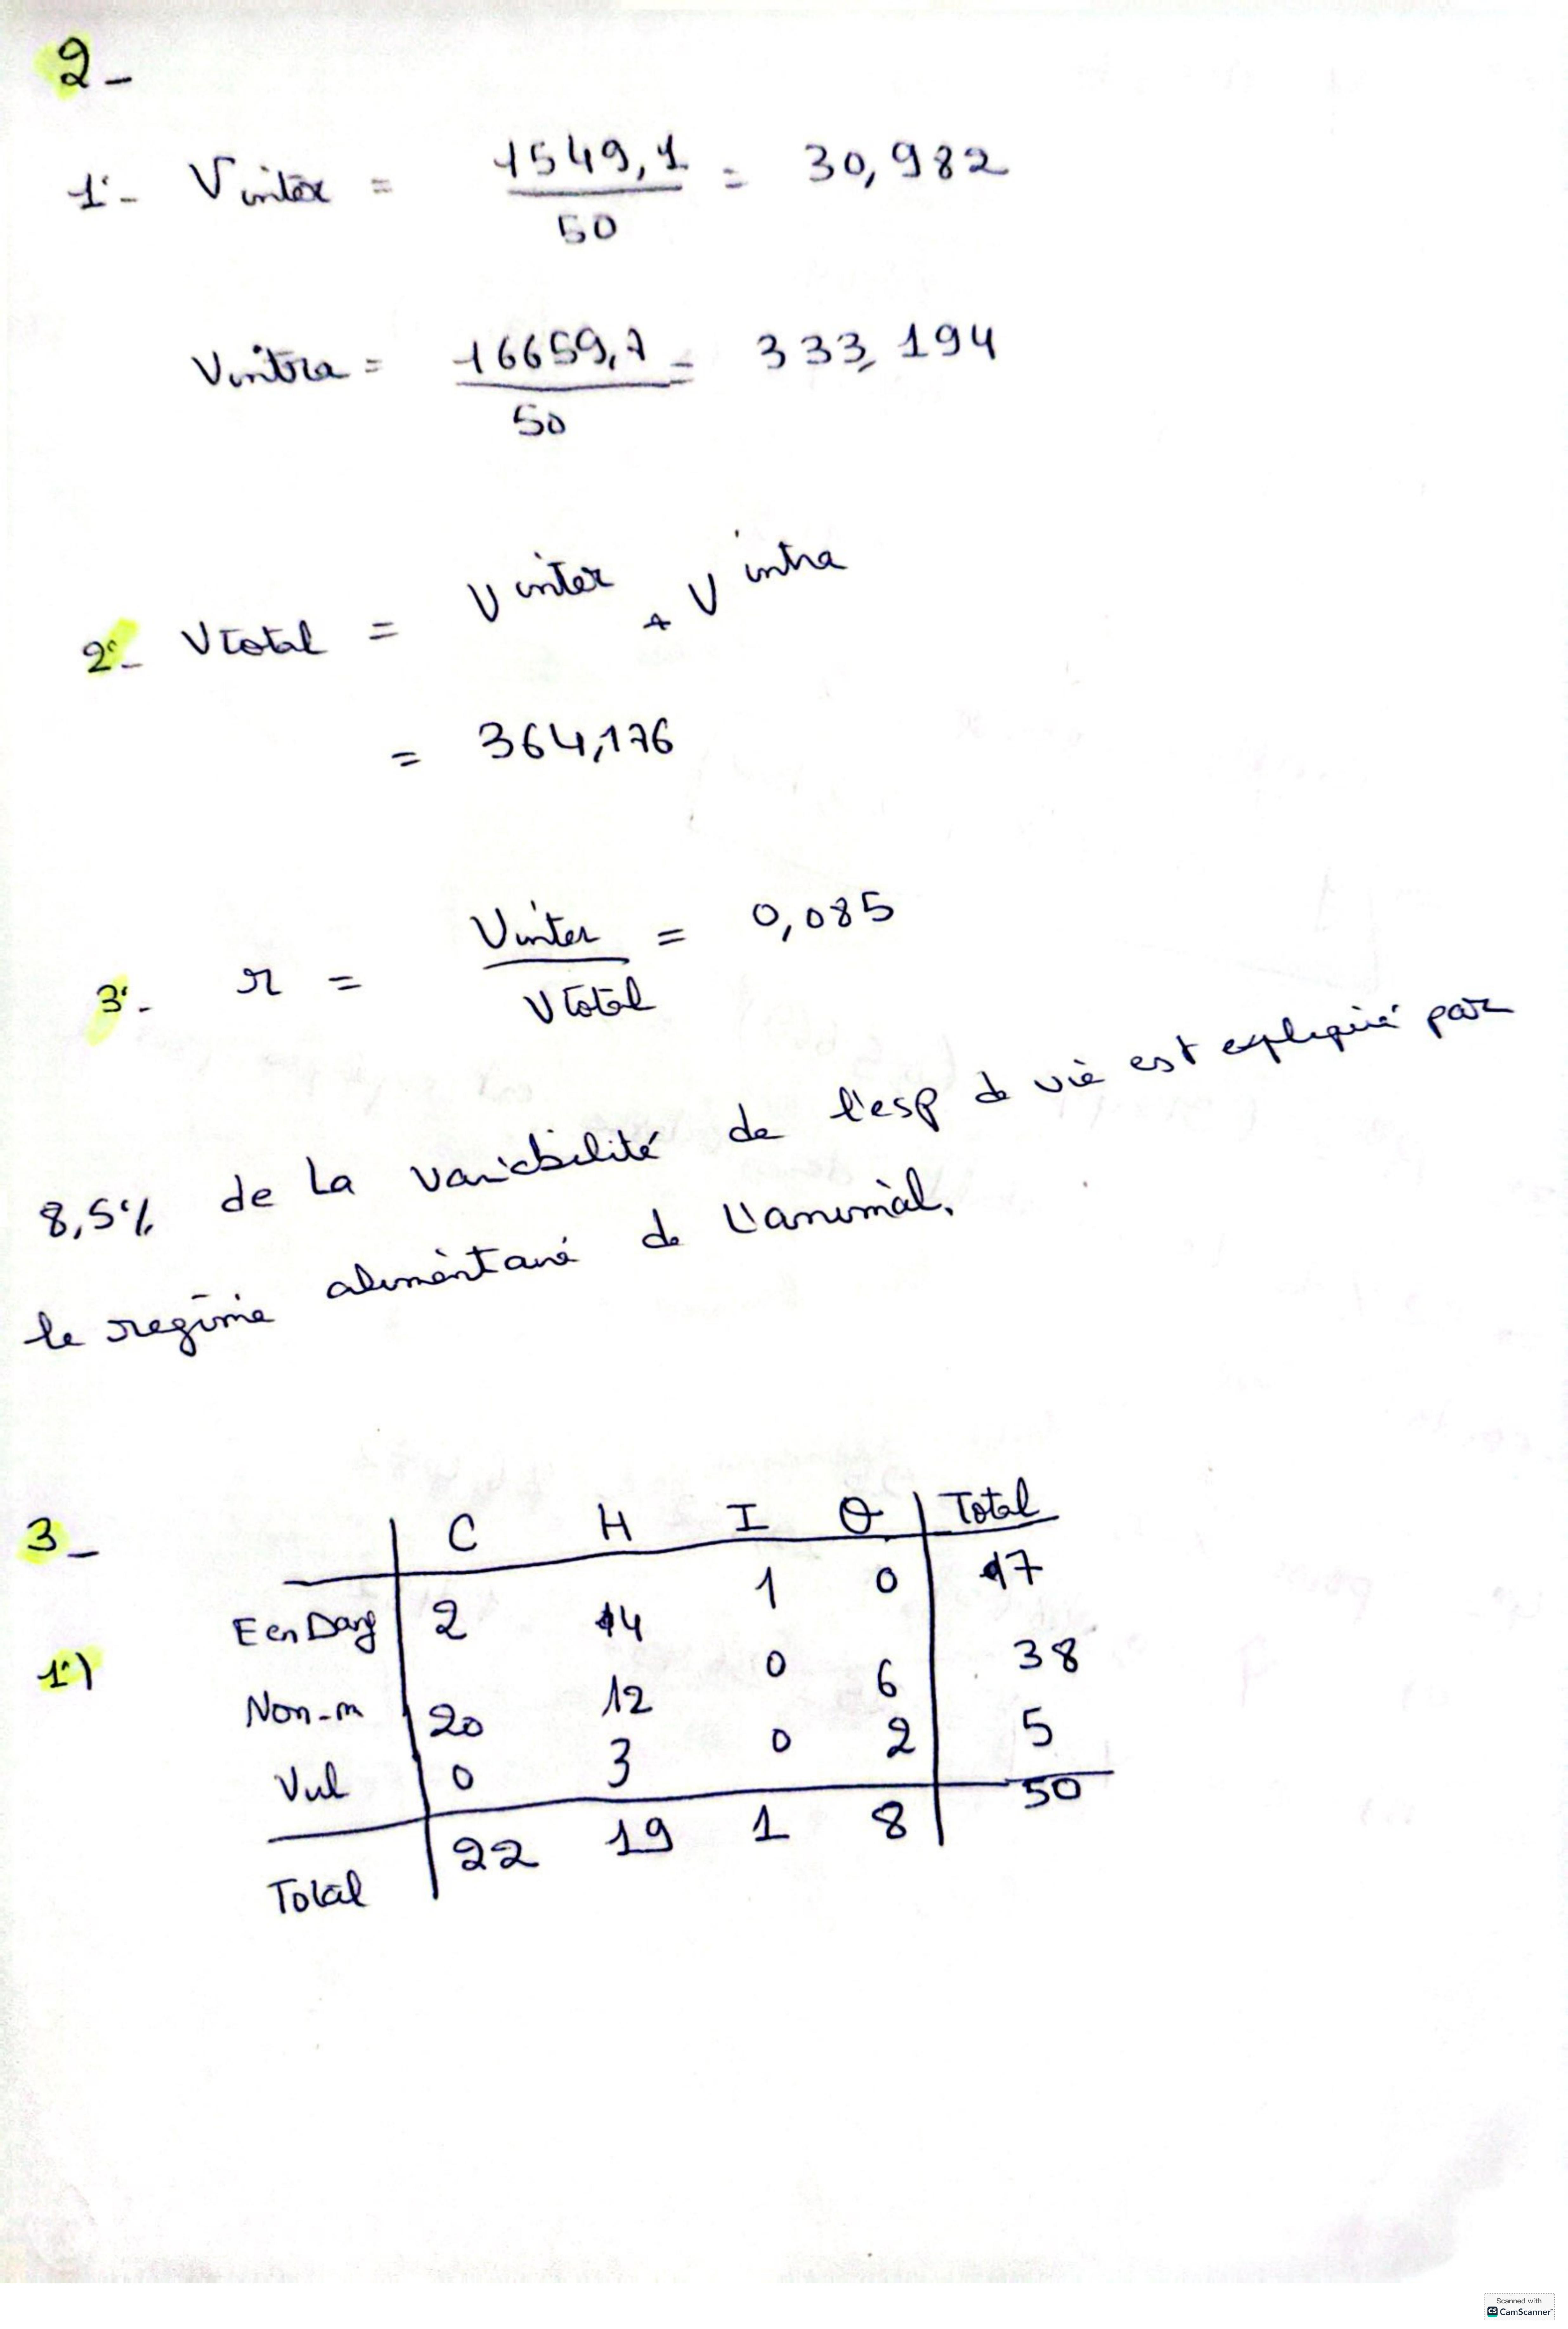 2-
1°- Vinter = 1549,1 / 50 = 30,982
Vintra = 16659,7 / 50 = 333,194
2°- VTotal = Vinter + Vintra
= 364,176
3°- r = Vinter / VTotal = 0,085
8,5% de La variabilité de l'esp de vie est expliqué par
le regime alimentaire de L'animal.
3-
C H I O Total
1°)
E en Dang 2 14 1 0 17
Non-m 20 12 0 6 38
Vul 0 3 0 2 5
Total 22 19 1 8 50
Scanned with
CS CamScanner